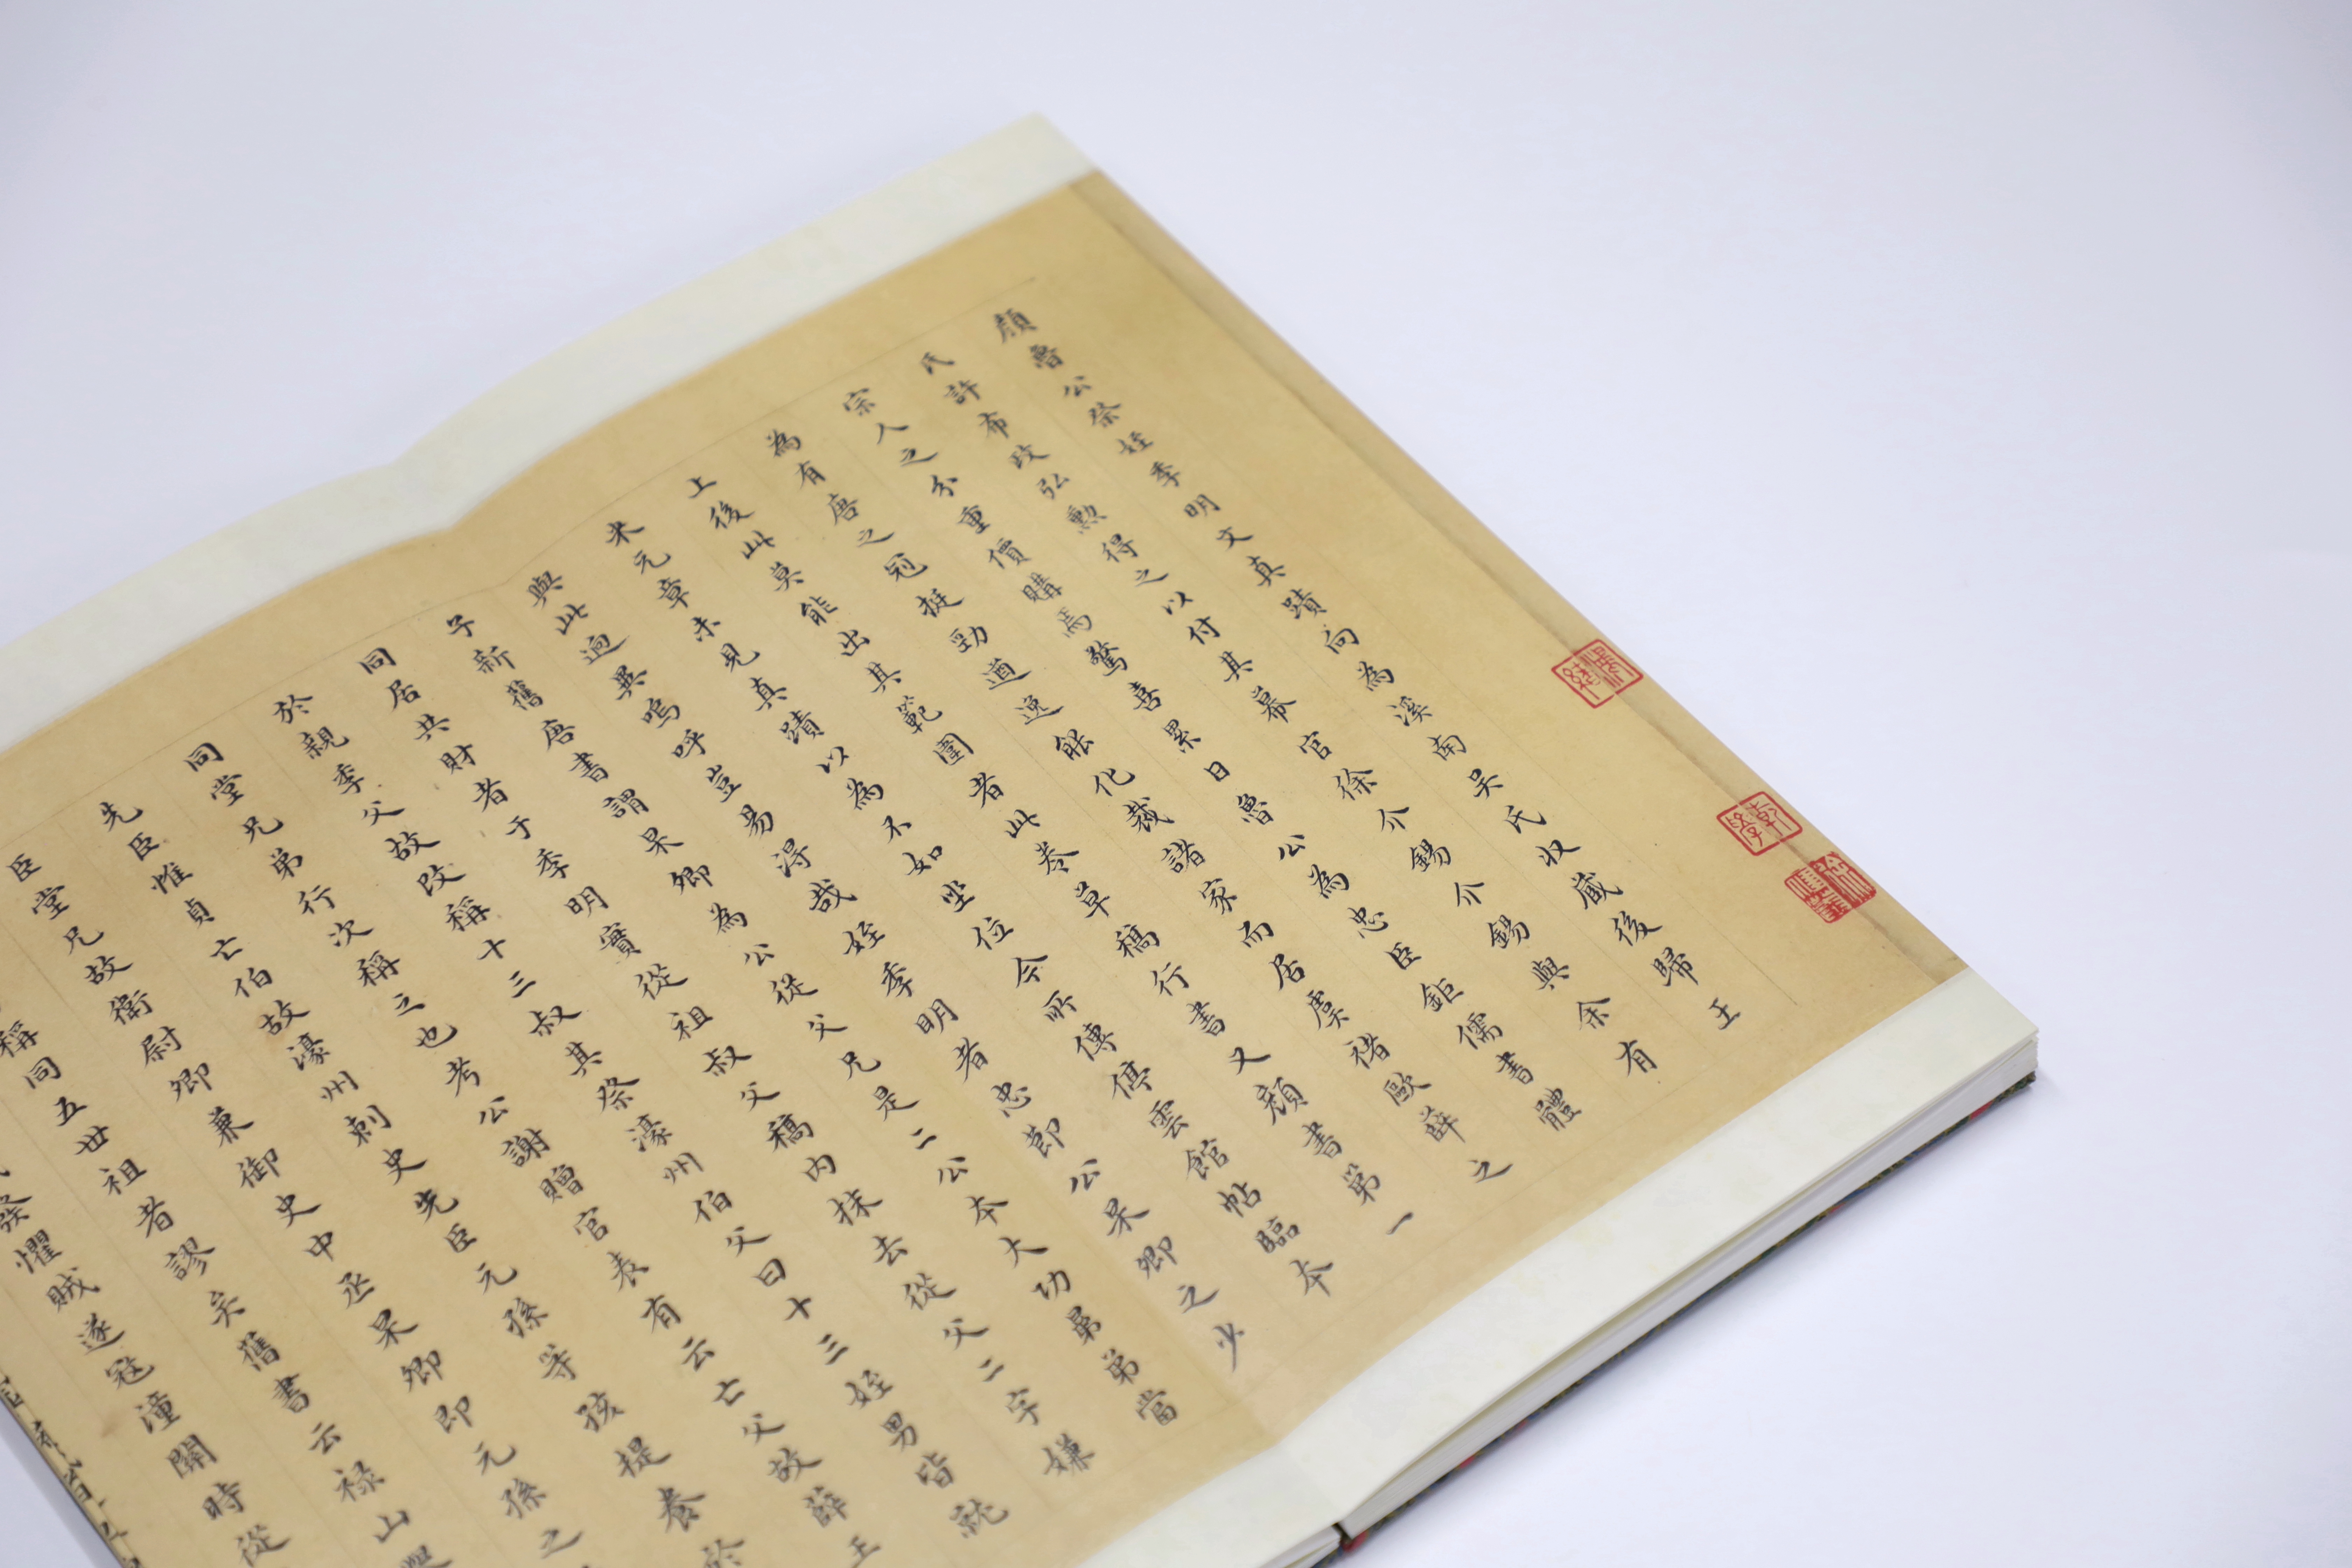 顏魯公祭姪季明文真蹟向為溪南吳氏收藏後歸王
氏許布政弘勲得之以付其幕官徐介錫介錫與余有
宗人之分重價購焉驚喜累日魯公為忠臣鉅儒書體
為有唐之冠挺勁遒逸能化裁諸家而居虞褚歐薛之
上後此莫能出其範圍者此卷草稿行書又顏書第一
米元章未見真蹟以為不如坐位今所傳停雲館帖臨本
與此迥異嗚呼豈易得哉姪季明者忠節公杲卿之少
子新舊唐書謂杲卿為公從父兄是二公本大功昆弟當
同居共財者于季明實從祖叔父稿内抹去從父二字嫌
於親季父故改稱十三叔其祭濠州伯父曰十三姪男皆就
同堂兄弟行次稱之也考公謝贈官表有云亡父故薛王
先臣惟貞亡伯故濠州刺史先臣元孫等孩提養於
臣堂兄故衛尉卿兼御史中丞杲卿即元孫之
稱同五丗祖者謬矣舊書云禄山
發懼賊遂寇潼關時從